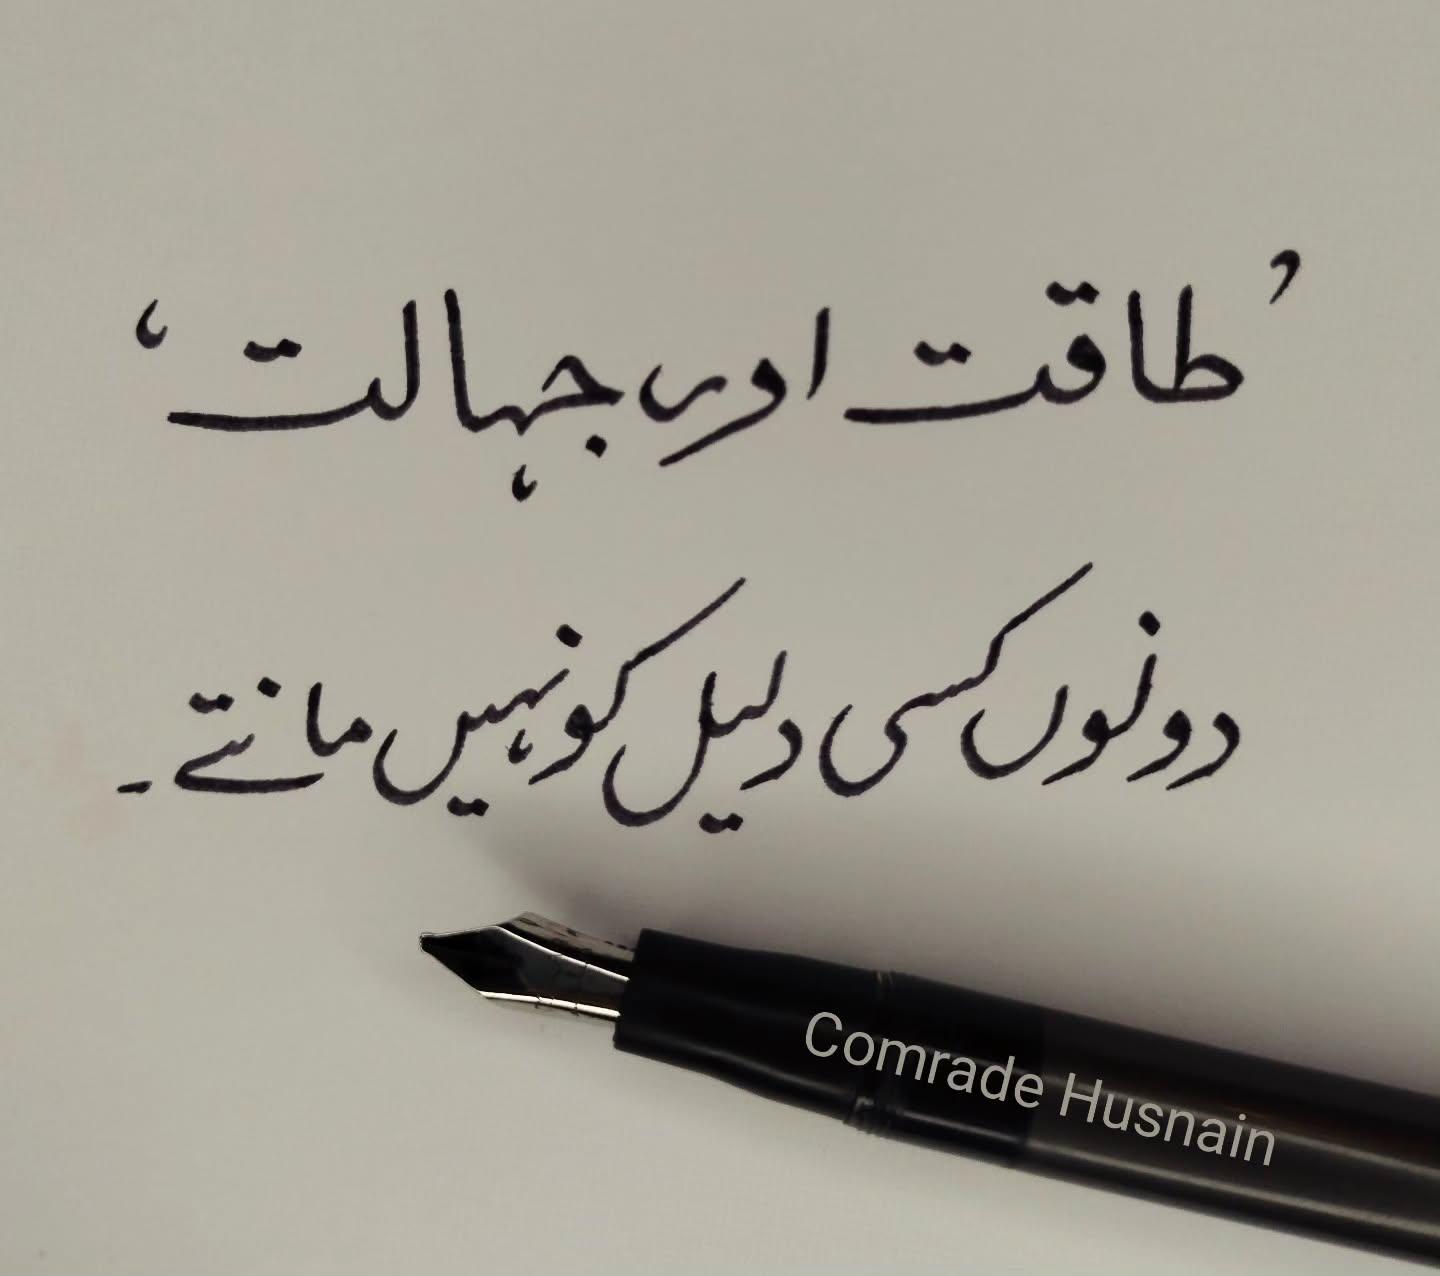 ’طاقت اور جہالت‘
دونوں کسی دلیل کو نہیں مانتے۔
Comrade Husnain